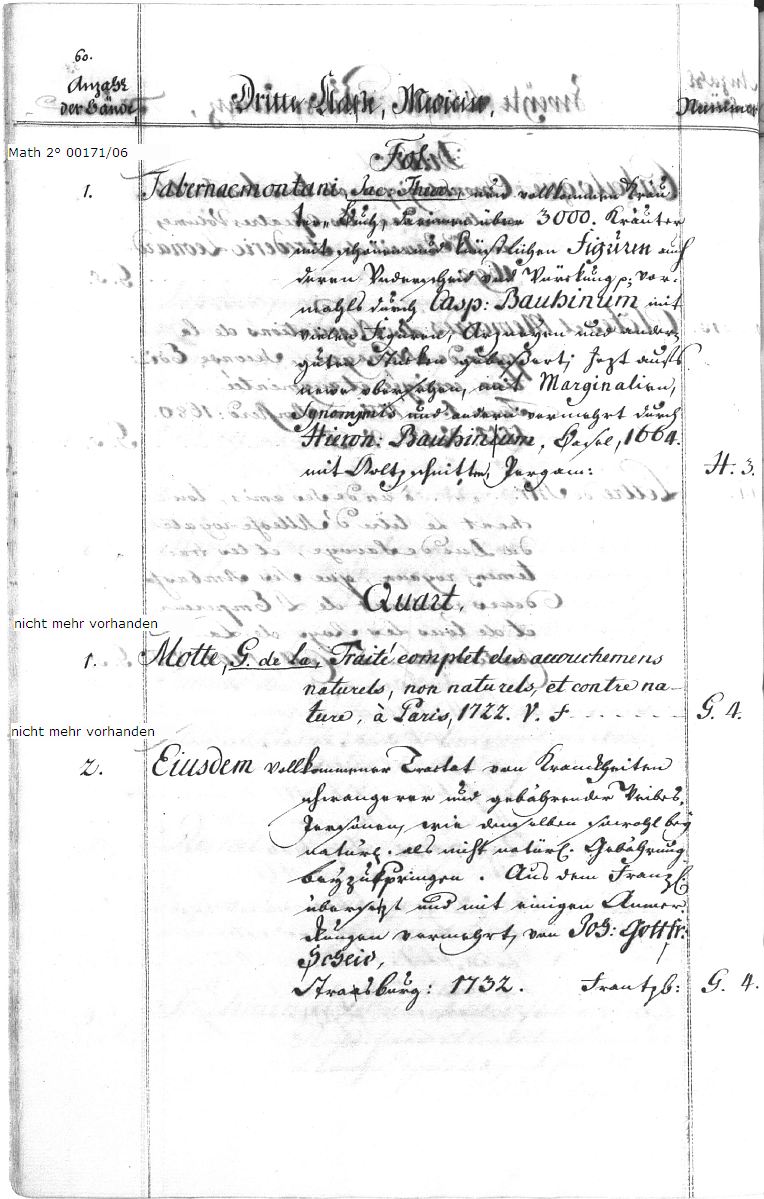 60.
Anzahl
der Bände,
Dritte Claße, Medicin,
Nummer
Math 2° 00171/06
Fol.
1. Tabernaemontani, Jac: Theod: neu vollkommen Kräu-
ter-Buch, darinnen über 3000. Kräuter
mit schönen und künstlichen Figüren auch
deren Underscheid und Würckung p. vor-
mahls durch Casp: Bauhinum mit
vielen Figuren, Arzneyen und ander
guten Stücken gebeßert; jezt aufs
newe übersehen, mit Marginalien,
Synonymis und andern vermehrt durch
Hieron: Bauhinum, Basel, 1664.
mit Holtzschnitten, Pergam: H. 3.
Quart.
nicht mehr vorhanden
1. Motte, G. de la, Traité complet des accouchemens
naturels, non naturels, et contre na-
ture, à Paris, 1722. G. 4.
nicht mehr vorhanden
2. Eiusdem vollkommener Tractat von Kranckheiten
schwangerer und gebährender Weibes-
Personen, wie denselben sowohl bey
natürl. als nicht natürl. Gebährung
beyzuspringen. Aus dem Franzs.
übersezt und mit einigen Anmer-
kungen vermehrt, von Joh: Gottfr:
Scheid,
Strasburg: 1732. Frantzb: G. 4.